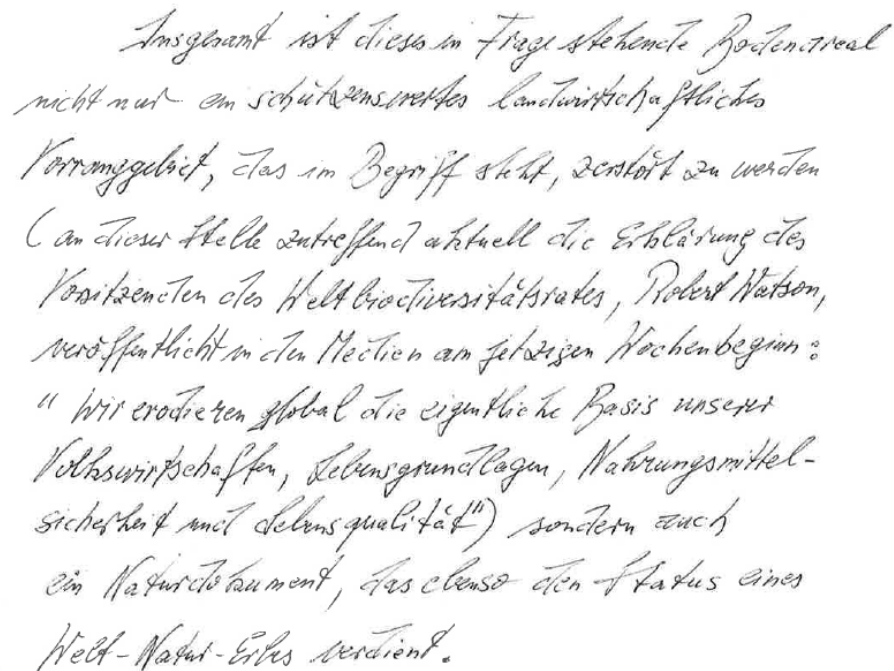 Insgesamt ist dieses in Frage stehende Bodenareal
nicht nur ein schützenswertes landwirtschaftliches
Vorranggebiet, das im Begriff steht, zerstört zu werden
(an dieser Stelle zutreffend aktuell die Erklärung des
Vorsitzenden des Weltbiodiversitätsrates, Robert Watson,
veröffentlicht in den Medien am jetzigen Wochenbeginn:
"Wir erodieren global die eigentliche Basis unserer
Volkswirtschaften, Lebensgrundlagen, Nahrungsmittel-
sicherheit und Lebensqualität") sondern auch
ein Naturdokument, das ebenso den Status eines
Welt-Natur-Erbes verdient.